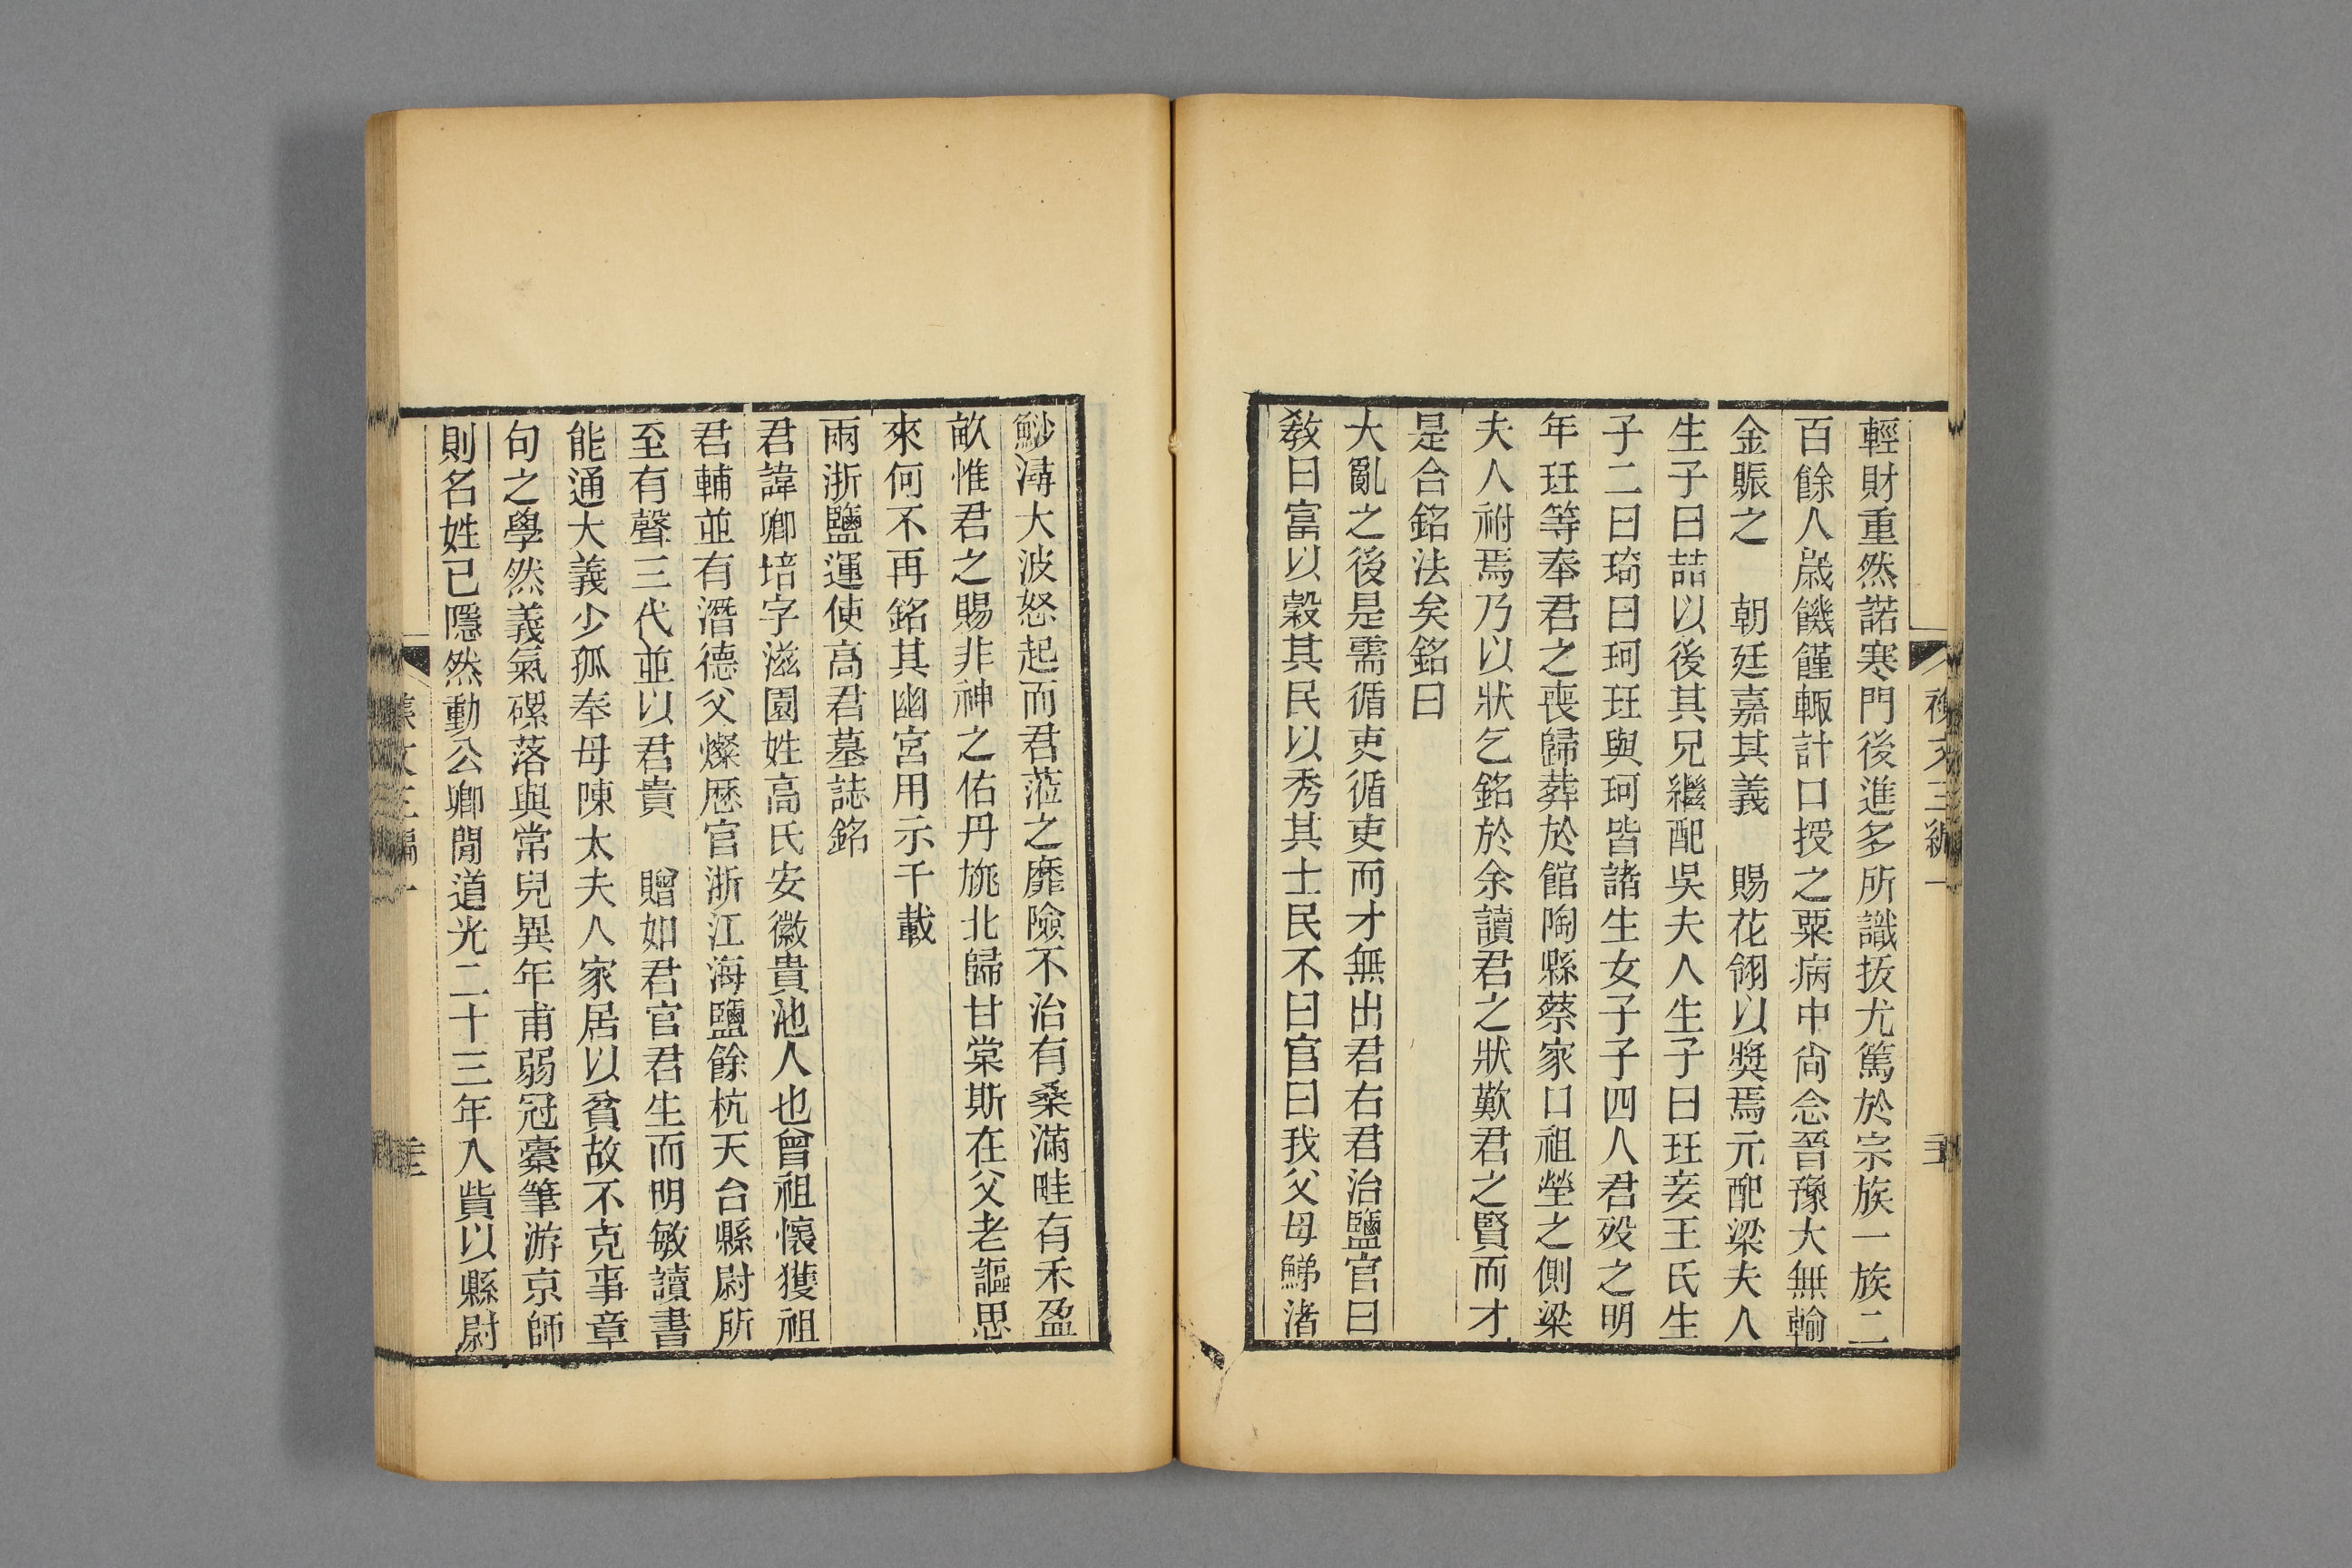 輕財重然諾寒門後進多所識拔尤篤於宗族一族二
百餘人歲饑饉輙計口授之粟病中尙念晉豫大無輸
金賑之　朝廷嘉其義　賜花翎以奬焉元配梁夫人
生子曰喆以後其兄繼配吳夫人生子曰玨妾王氏生
子二曰琦曰珂玨與珂皆諸生女子子四人君歿之明
年玨等奉君之喪歸葬於館陶縣蔡家口祖塋之側梁
夫人祔焉乃以狀乞銘於余讀君之狀歎君之賢而才
是合銘法矣銘曰
大亂之後是需循吏循吏而才無出君右君治鹽官曰
敎曰富以穀其民以秀其士民不曰官曰我父母鯷渚
魦潯大波怒起而君蒞之靡險不治有桑滿畦有禾盈
畝惟君之賜非神之佑丹旐北歸甘棠斯在父老謳思
來何不再銘其幽宮用示千載
兩浙鹽運使高君墓誌銘
君諱卿培字滋園姓高氏安徽貴池人也曾祖懷獲祖
君輔並有潛德父燦歷官浙江海鹽餘杭天台縣尉所
至有聲三代並以君貴　贈如君官君生而明敏讀書
能通大義少孤奉母陳太夫人家居以貧故不克事章
句之學然義氣磥落與常兒異年甫弱冠橐筆游京師
則名姓已隱然動公卿閒道光二十三年入貲以縣尉